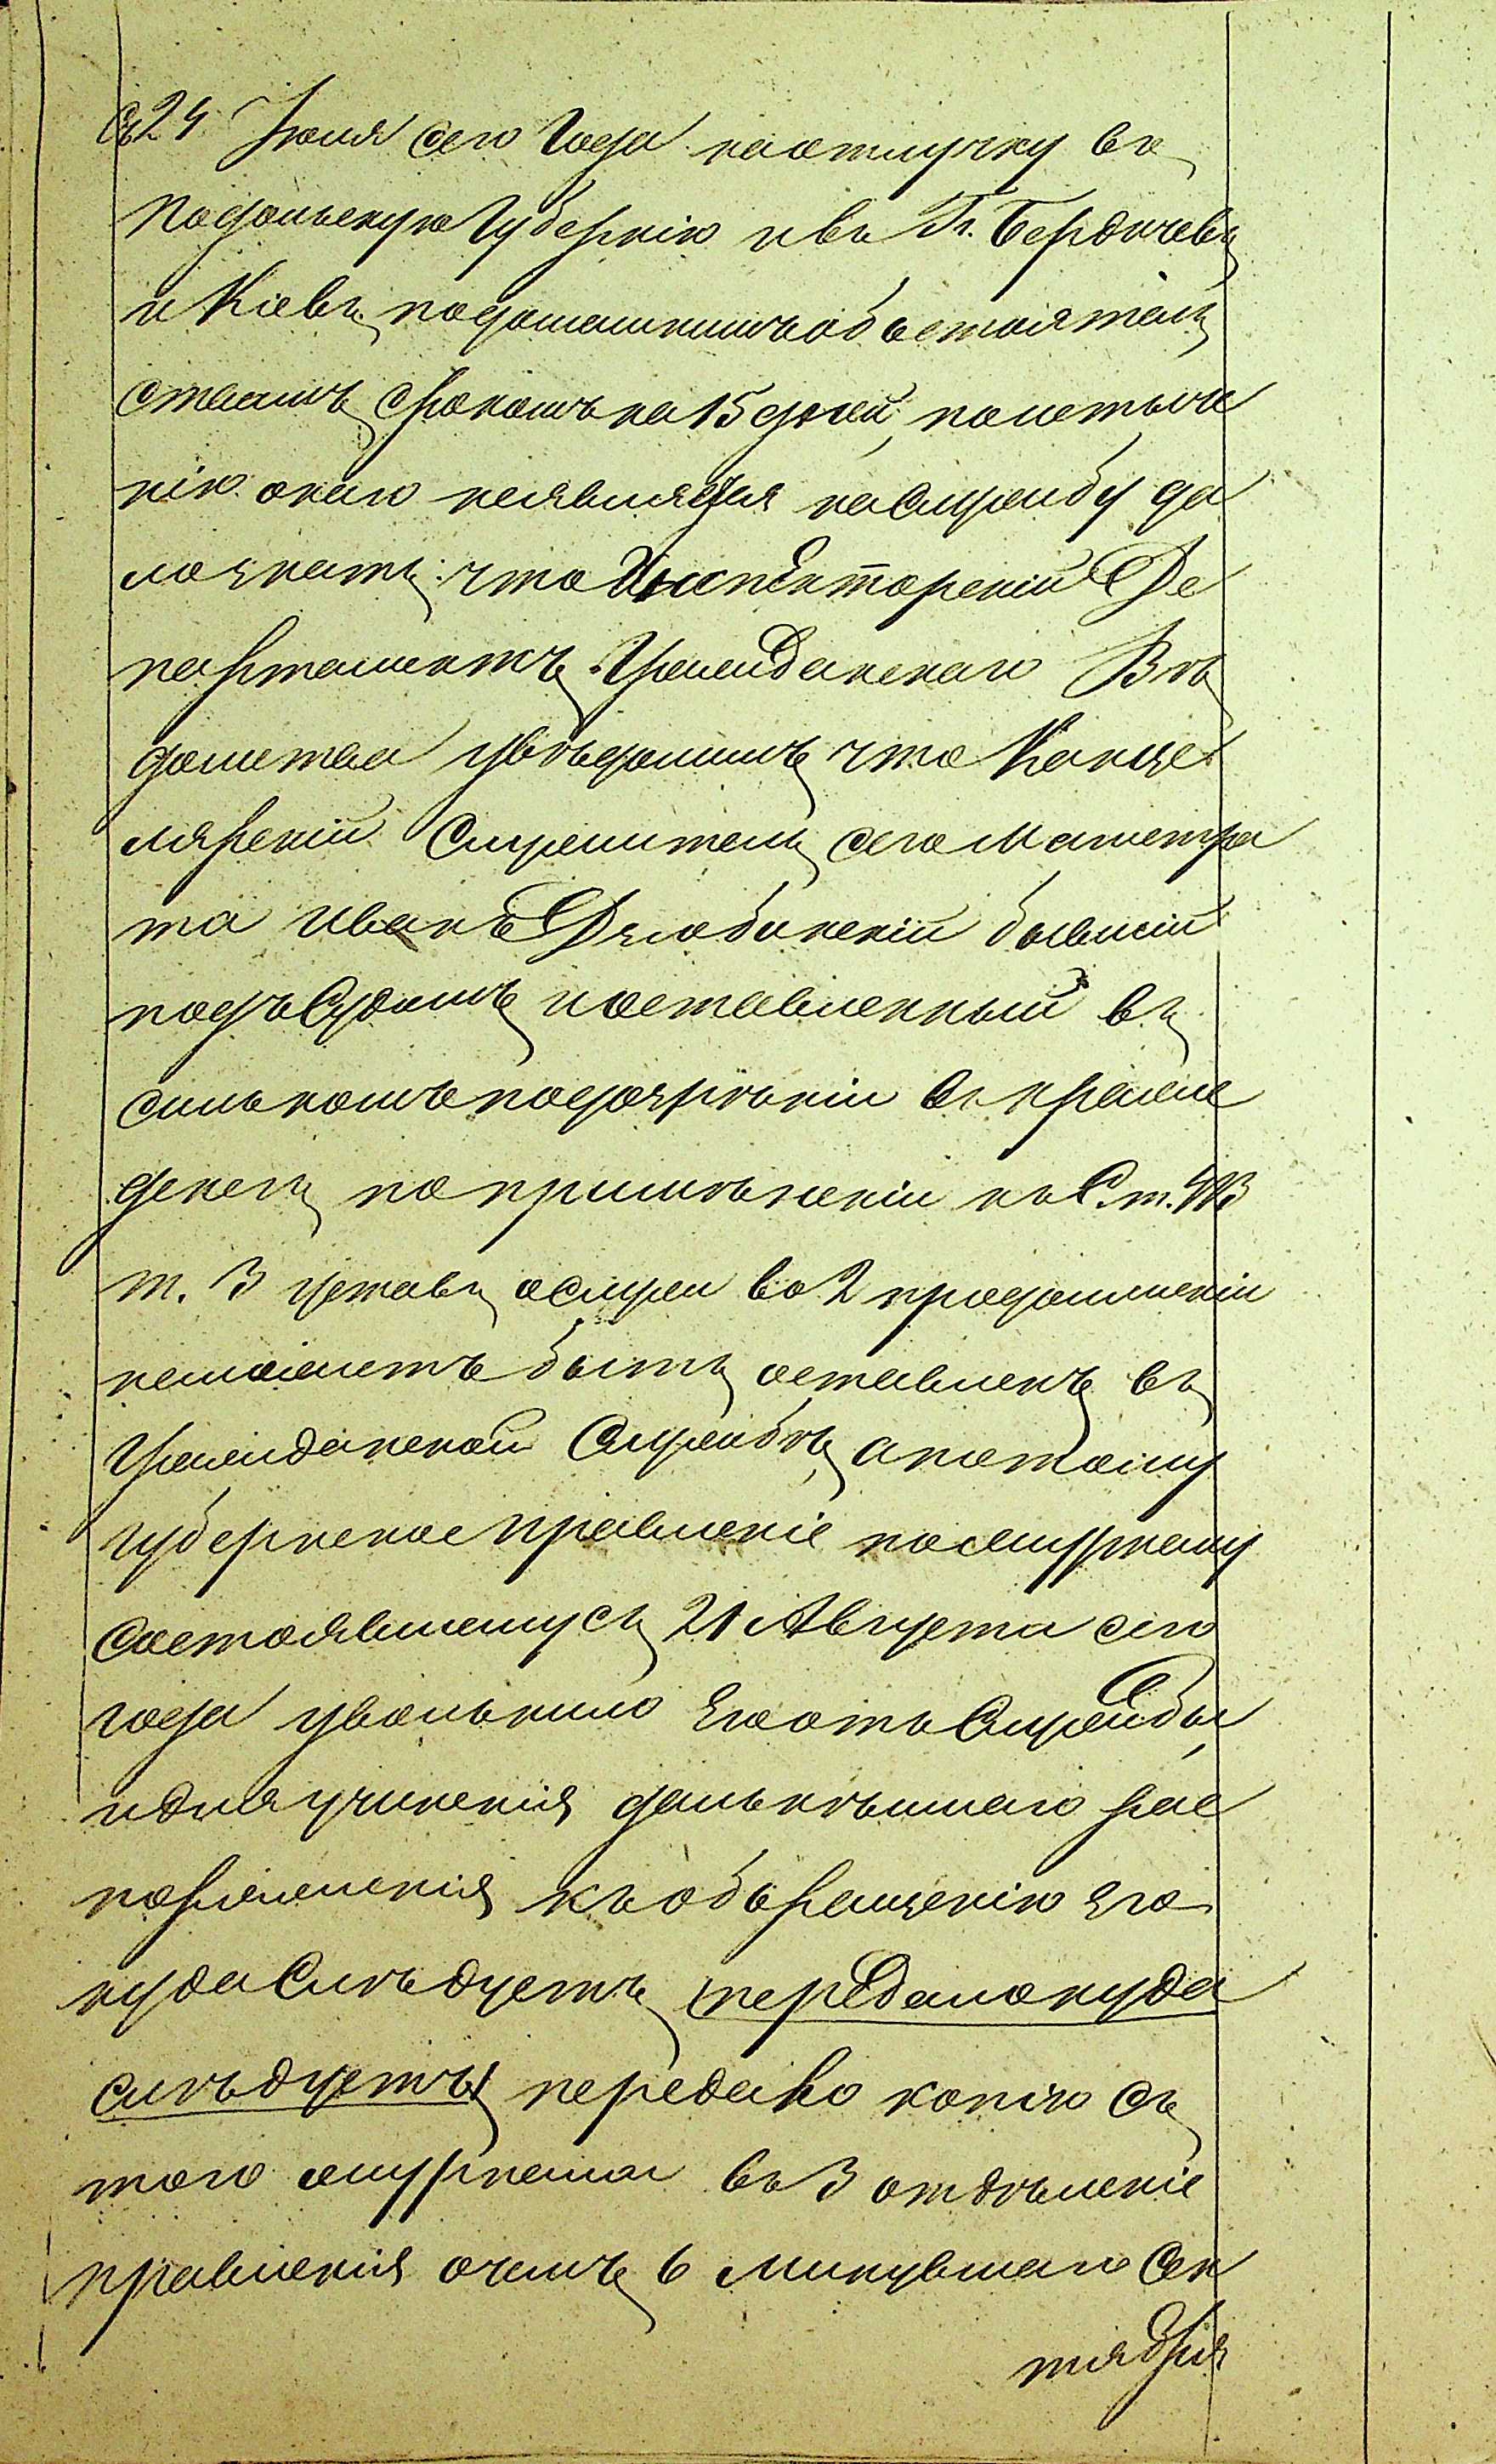 съ 24 Іюня сего года на отлучку въ
подольскую губернію и въ Гг. Бердичевъ
и Кіевъ по домашнимъ обстоятель
ствамъ срокомъ на 15 дней, по истече
нію онаго не явился на Службу до
ложить: что Инспекторскій Де
партаментъ Гражданскаго Вѣ
домства увѣдомилъ что Канце
лярскій Служитель сего Магистра
та Иванъ Дзюбинскій бывшій
подъ Судомъ и оставленный въ
сильномъ подозрѣніи въ кражѣ
денегъ по примѣненіи къ Ст.
т. 3 уставъ о службѣ во 2 продолженіи
не можетъ быть оставленъ въ
Гражданской Службѣ, а потому
губернское правленіе по журналу
состоявшемусь 21 Августа сего
года уволило его отъ Службы,
и для учиненія дальнѣйшаго рас
поряженія къ обращенію его
куда Слѣдуетъ (передало куда
слѣдуетъ) передано копію съ
того журнала въ 3 отдѣленіе
правленія о чемъ 6 минувшаго Сен
тября